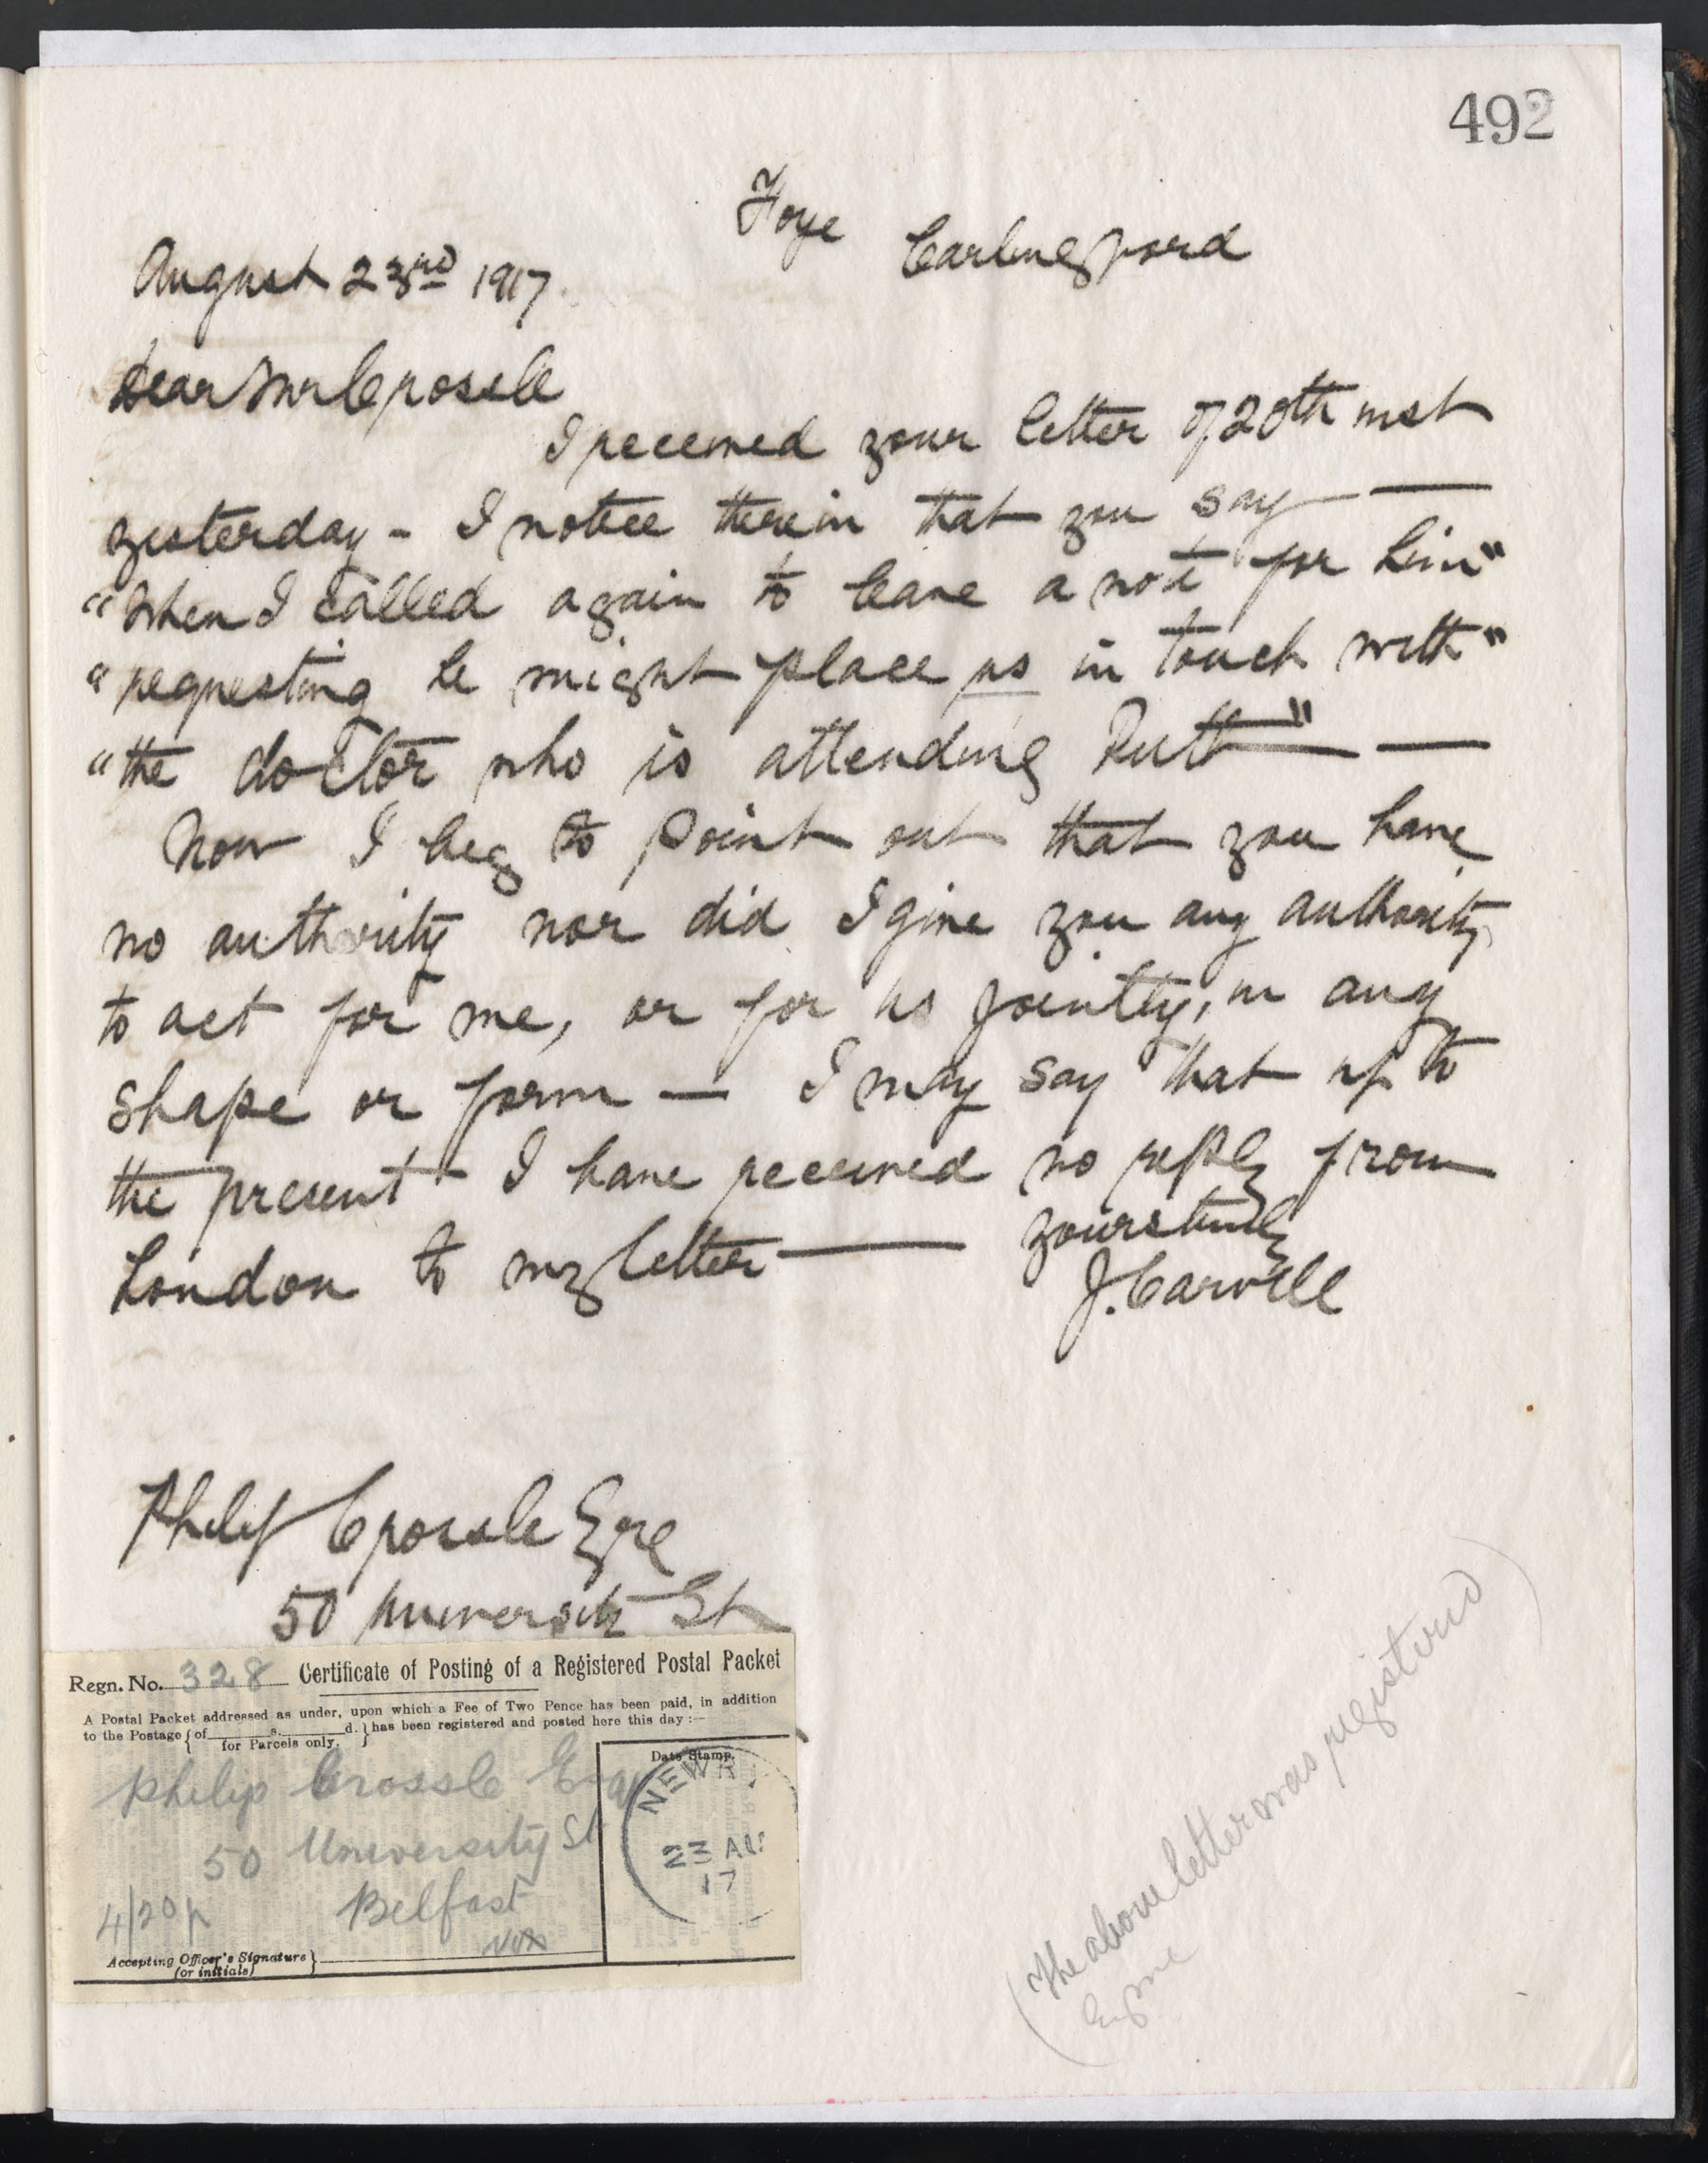 492
Foye Carlingford
August 23rd 1917.
Dear Mr Crossle
I received your letter of 20th inst
yesterday - I notice therein that you say —
"When I called again to leave a note for him"
"requesting he might place us in touch with"
"the doctor who is attending Ruth" —
Now I beg to point out that you have
no authority nor did I give you any authority
to act for me, or for us jointly, in any
shape or form — I may say that up to
the present I have received no reply from
London to my letter — yours truly
J. Carvill
Philip Crossle Esqre
50 University St
Regn. No. 328 Certificate of Posting of a Registered Postal Packet
A Postal Packet addressed as under, upon which a Fee of Two Pence has been paid, in addition
to the Postage { of s. d. } has been registered and posted here this day :—
for Parcels only.
Date Stamp.
NEWRY
23 AU
17
Philip Crossle Esq
50 University St
4/20 p Belfast
Accepting Officer's Signature }
(or initials)
(The above letter was registered
by me